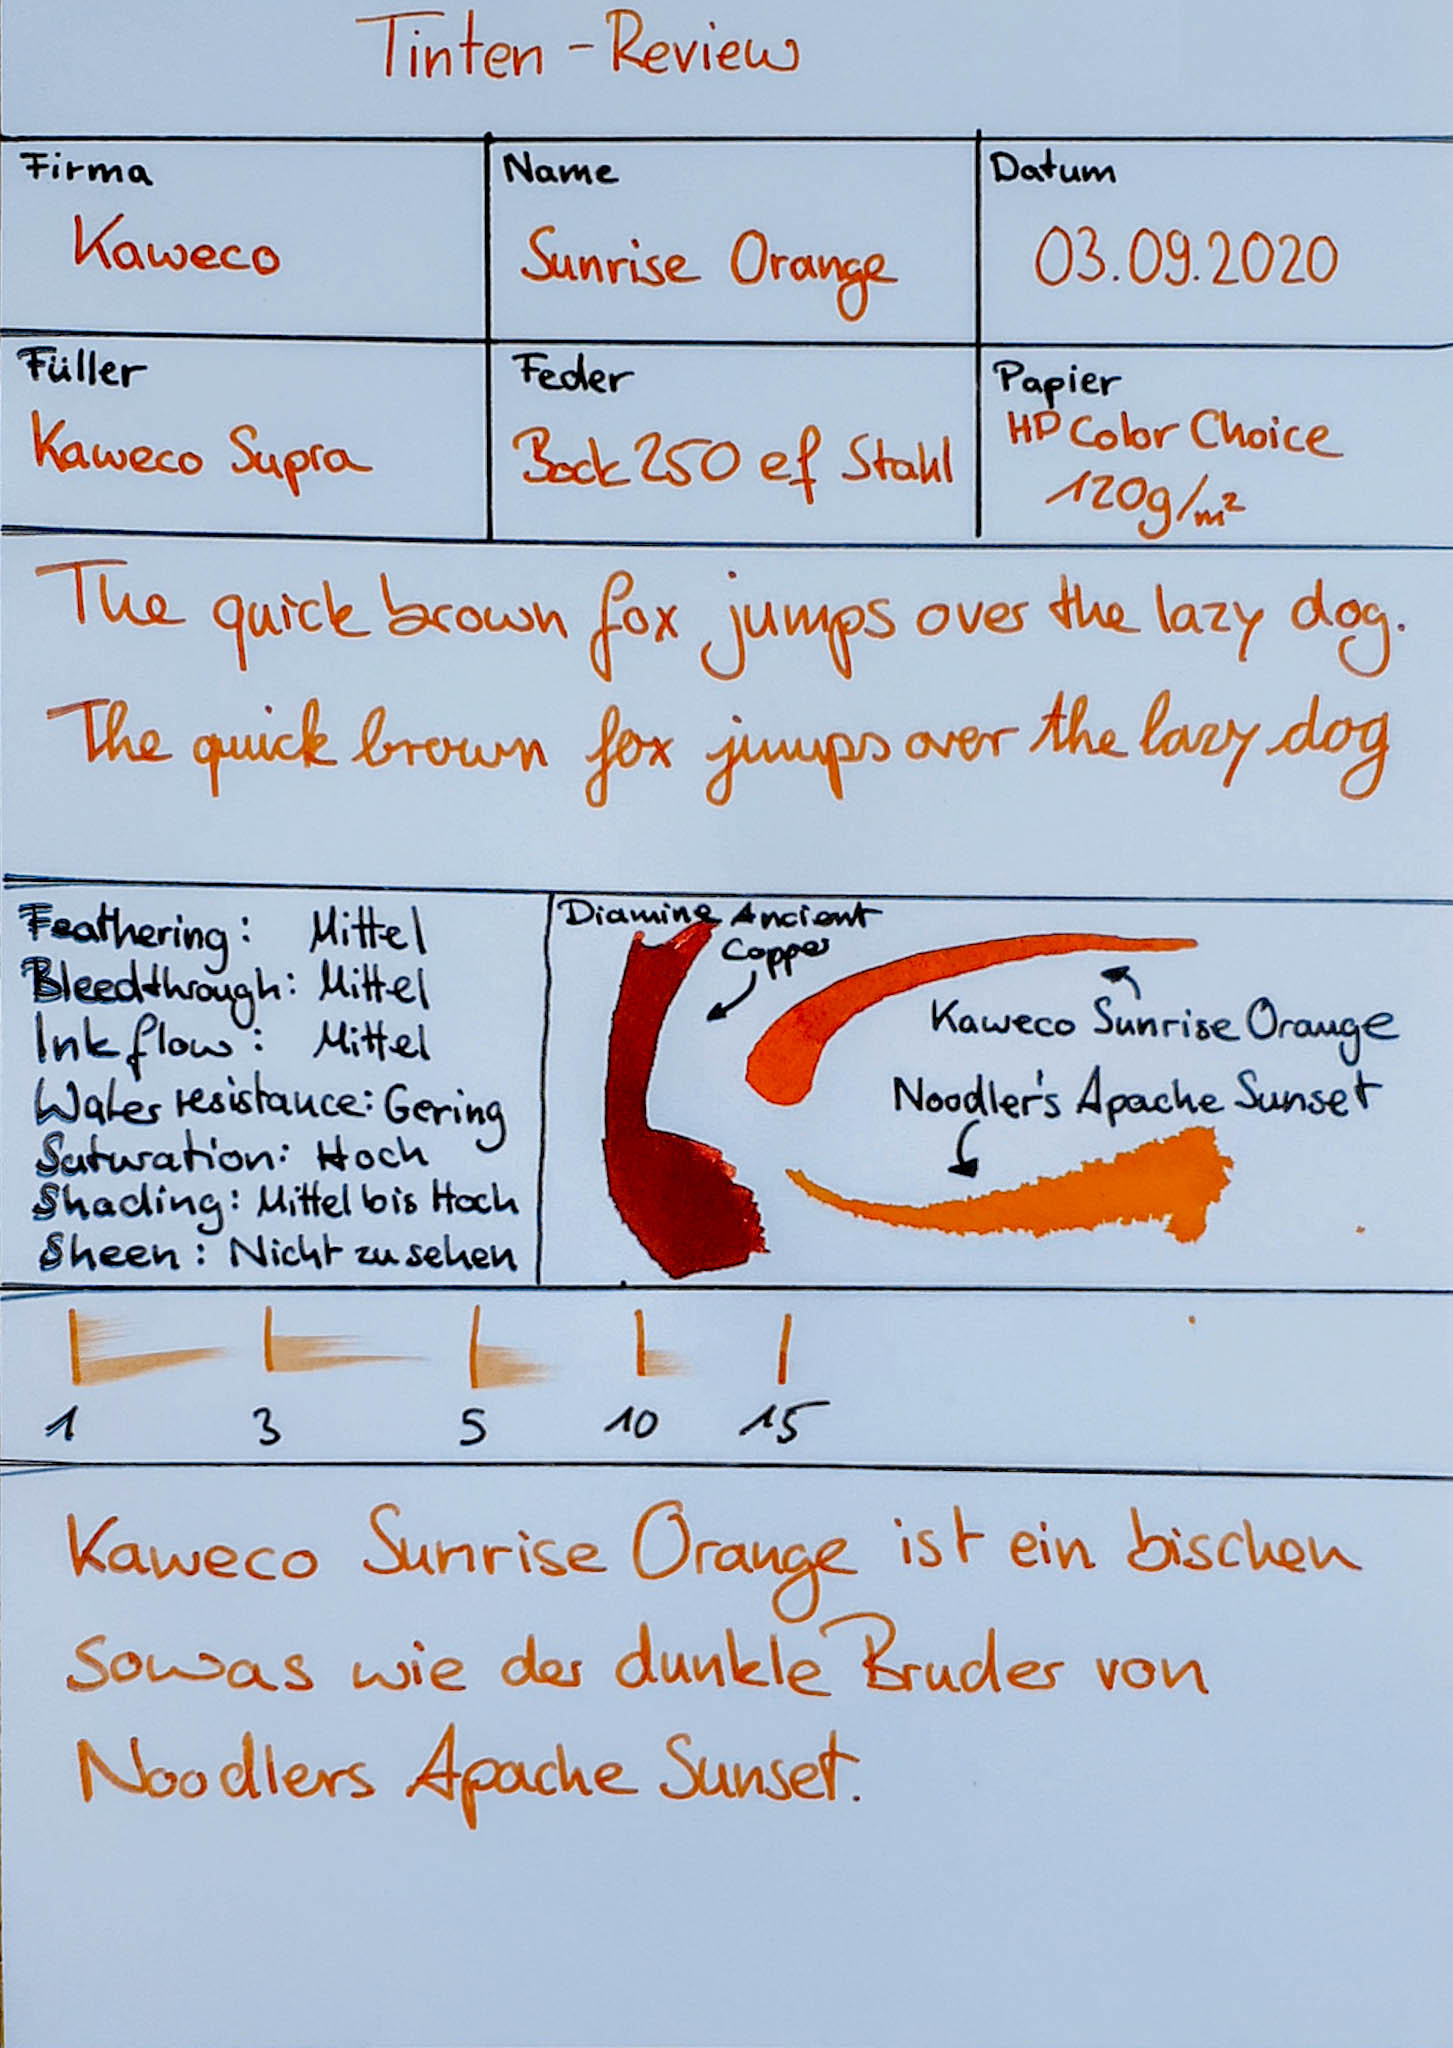 Tinten - Review
Firma
Name
Datum
Kaweco
Sunrise Orange
03.09.2020
Füller
Feder
Papier
Kaweco Supra
Bock 250 ef Stahl
HP Color Choice
120g/m²
The quick brown fox jumps over the lazy dog.
The quick brown fox jumps over the lazy dog
Feathering: Mittel
Bleedthrough: Mittel
Ink flow: Mittel
Water resistance: Gering
Saturation: Hoch
Shading: Mittel bis Hoch
Sheen: Nicht zu sehen
Diamine Ancient
Copper
Kaweco Sunrise Orange
Noodler's Apache Sunset
1 3 5 10 15
Kaweco Sunrise Orange ist ein bischen
sowas wie der dunkle Bruder von
Noodlers Apache Sunset.